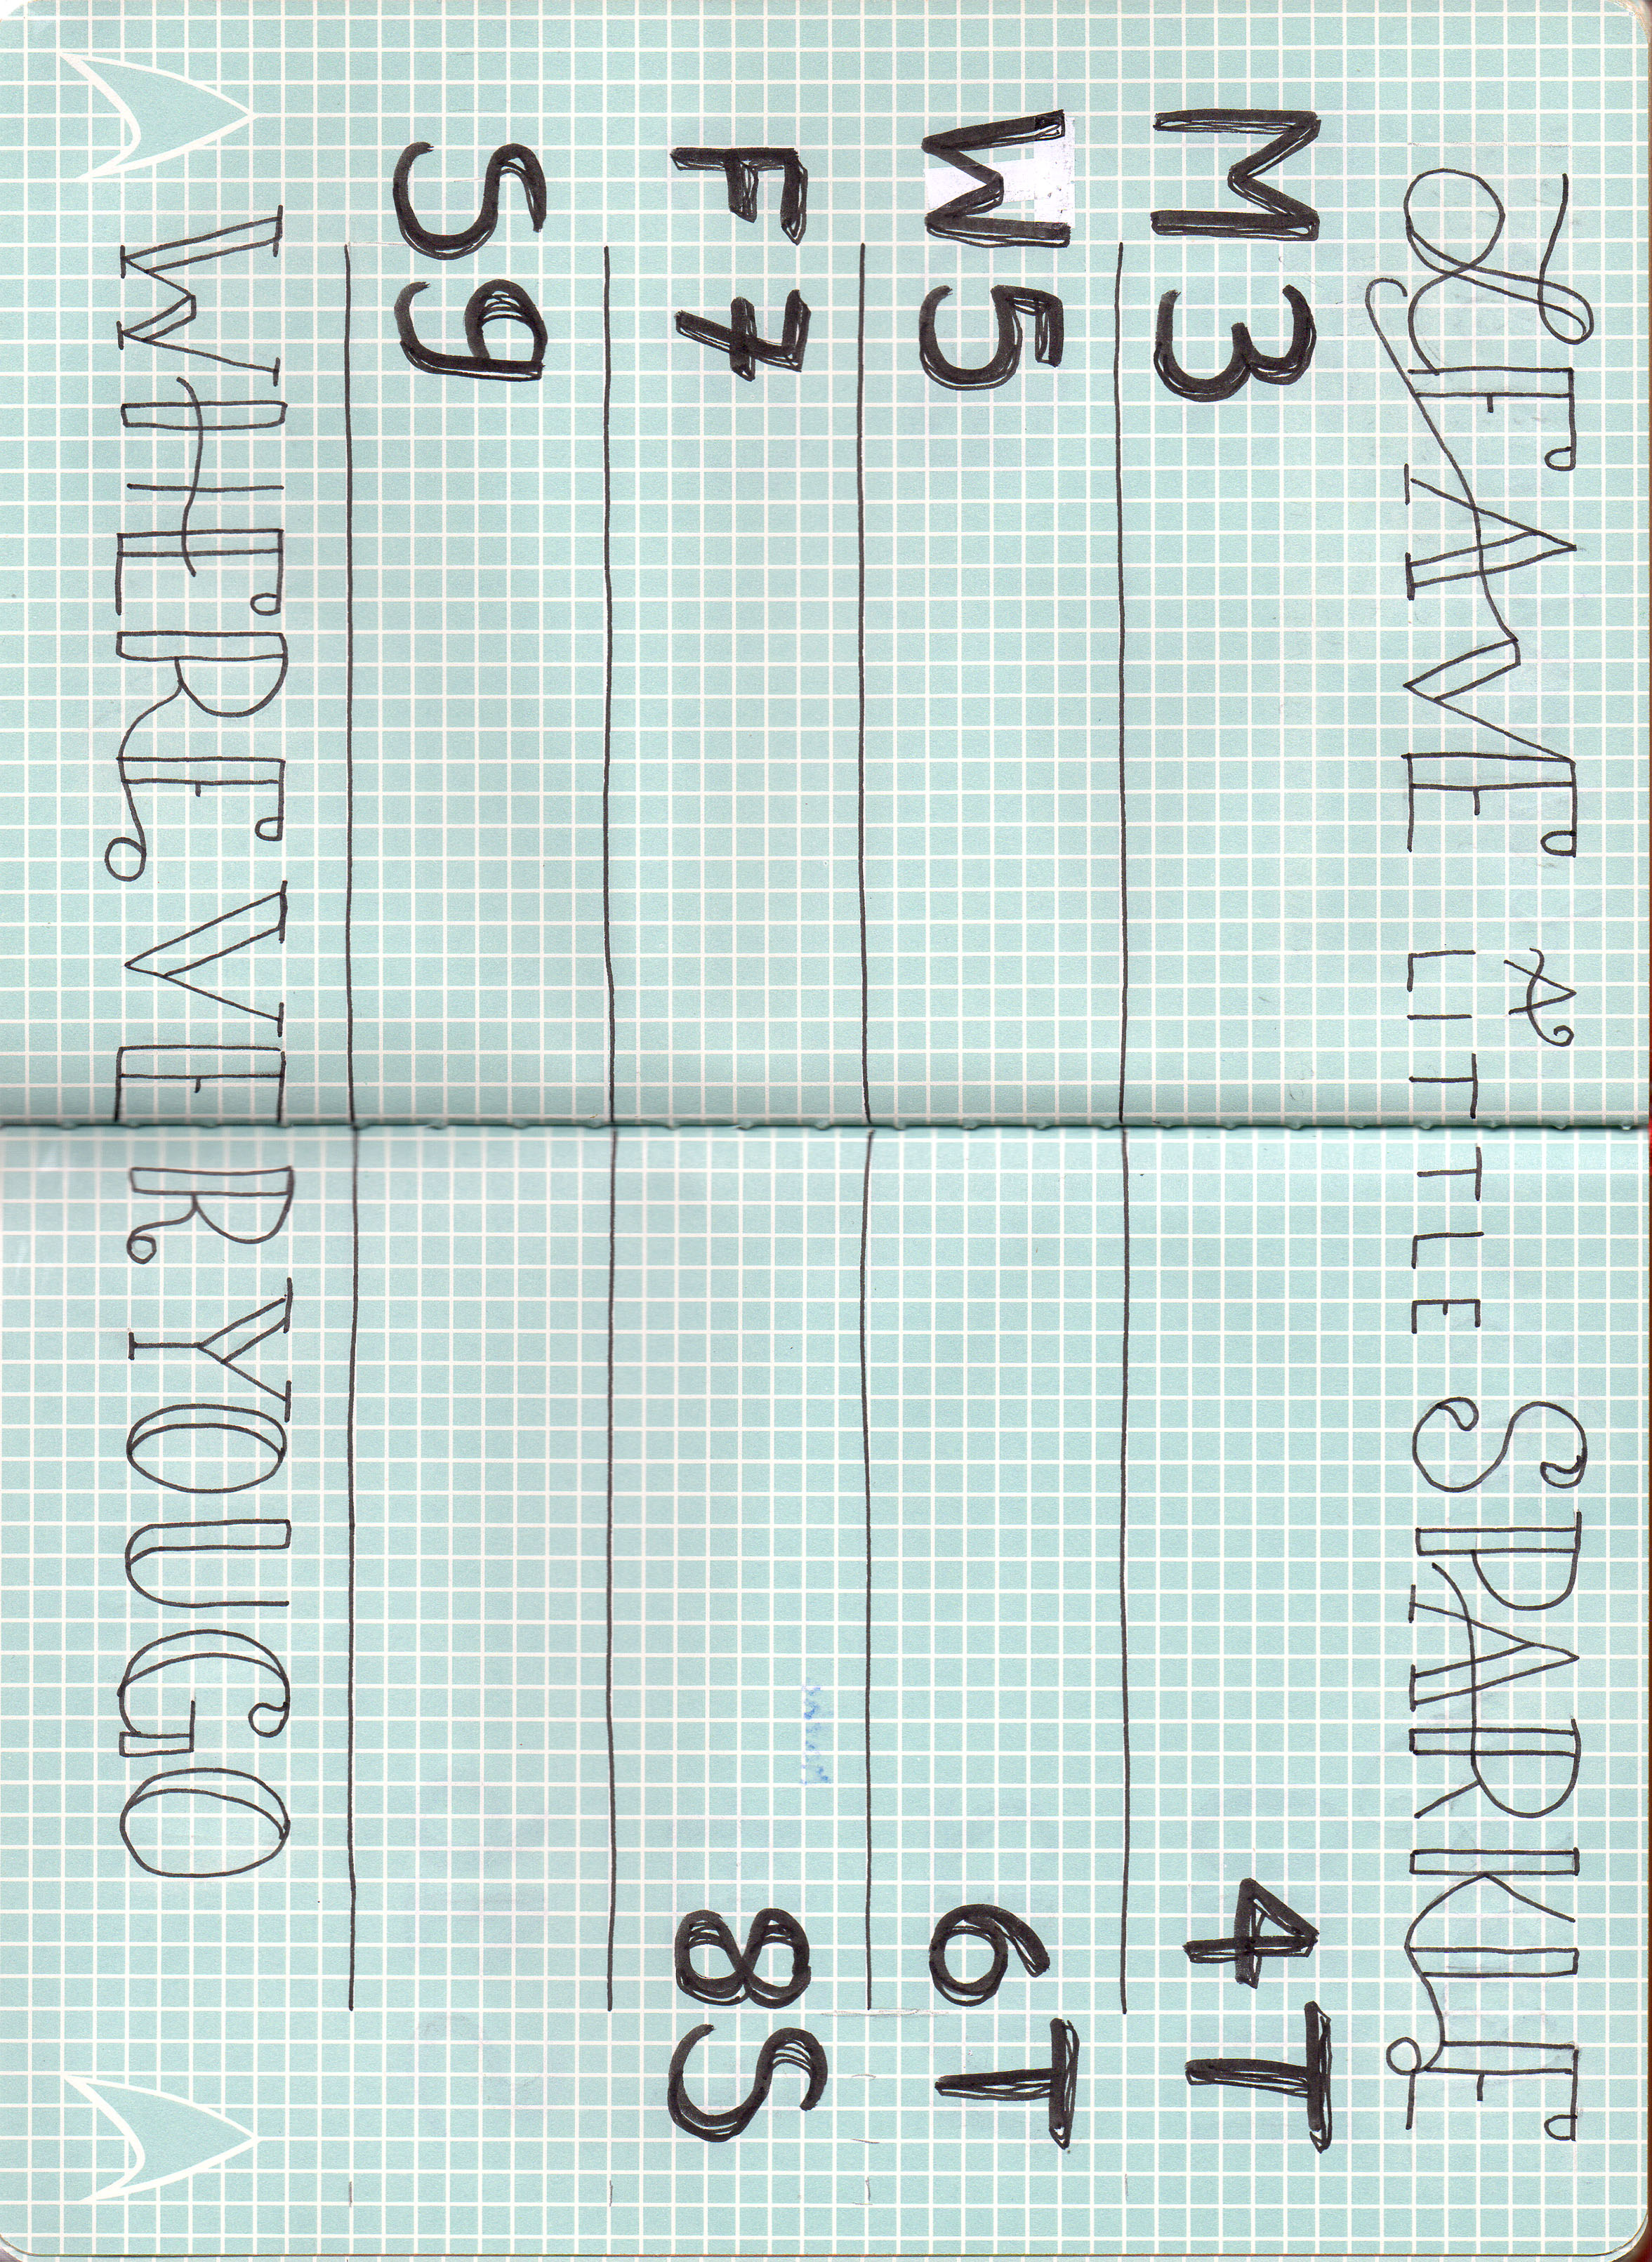 LEAVE A LITTLE SPARKLE
M 3 4 T
W 5 6 T
F 7 8 S
S 9
WHEREVER YOU GO